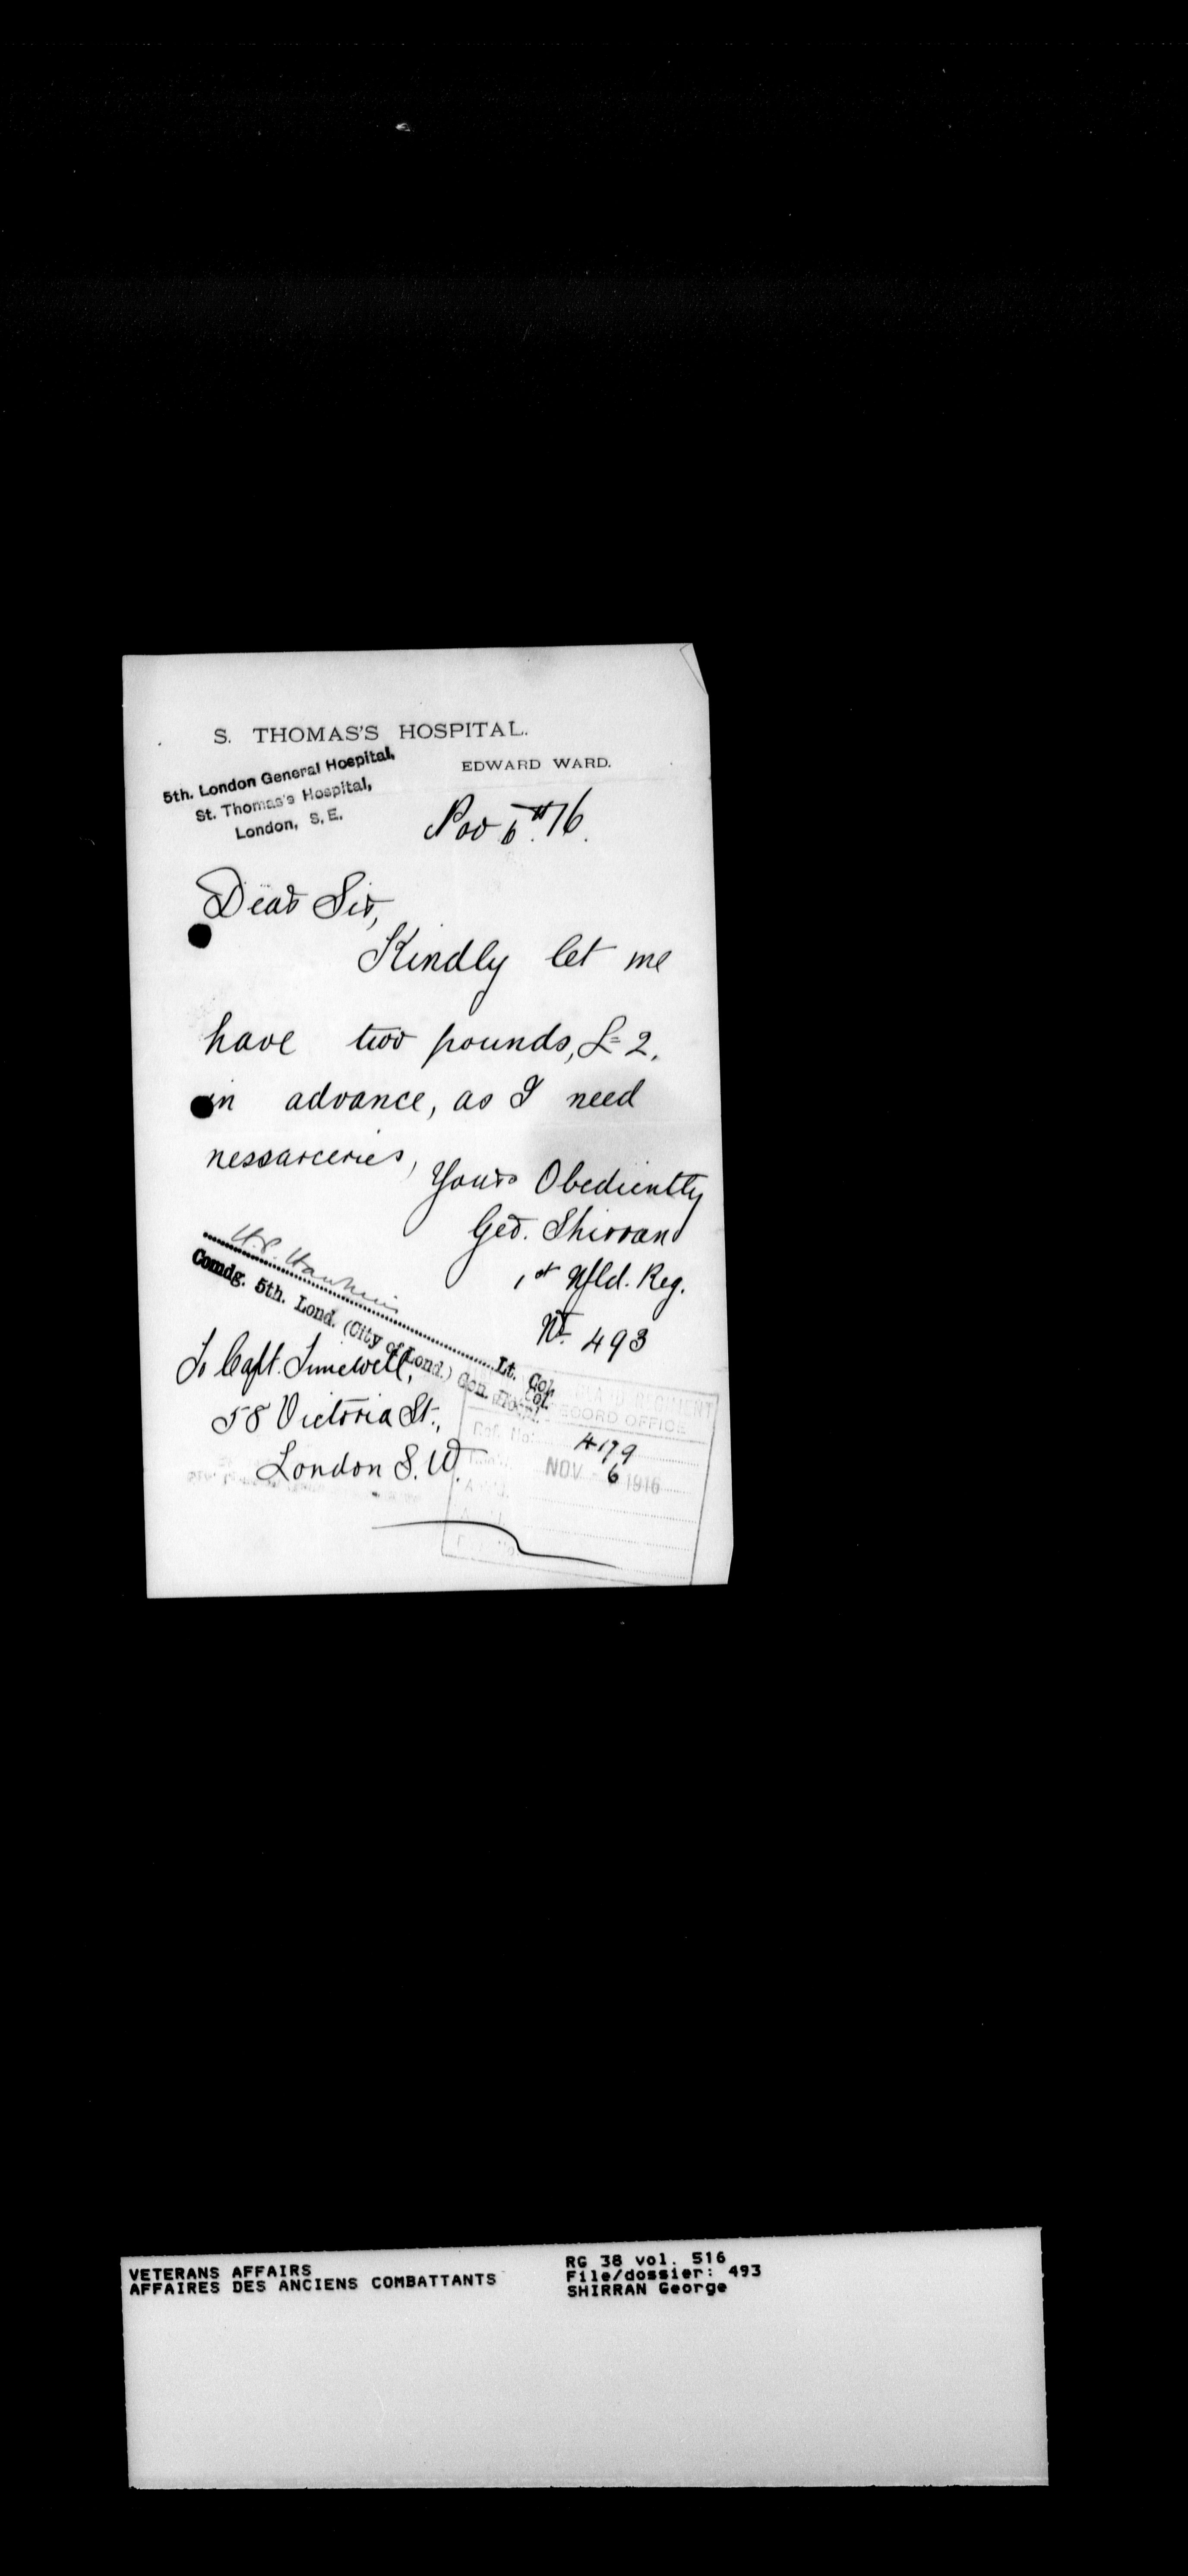 S. THOMAS'S HOSPITAL.
5th. London General Hospital,
St. Thomas's Hospital,
London, S.E.
EDWARD WARD.
Nov 6th 16.
Dear Sir,
Kindly let me
have two pounds, £=2,
in advance, as I need
nessarceries,
Yours Obediently
Geo. Shirran
1st Nfld. Reg.
No. 493
Lt. Col.
Comdg. 5th. Lond. (City of Lond.) Gen. Hospl.
To Capt. Timewell,
58 Victoria St.,
London S.W.
REGIMENT
RECORD OFFICE
Ref. No. 4179
NOV 6 1916
VETERANS AFFAIRS
AFFAIRES DES ANCIENS COMBATTANTS
RG 38 vol. 516
File/dossier: 493
SHIRRAN George